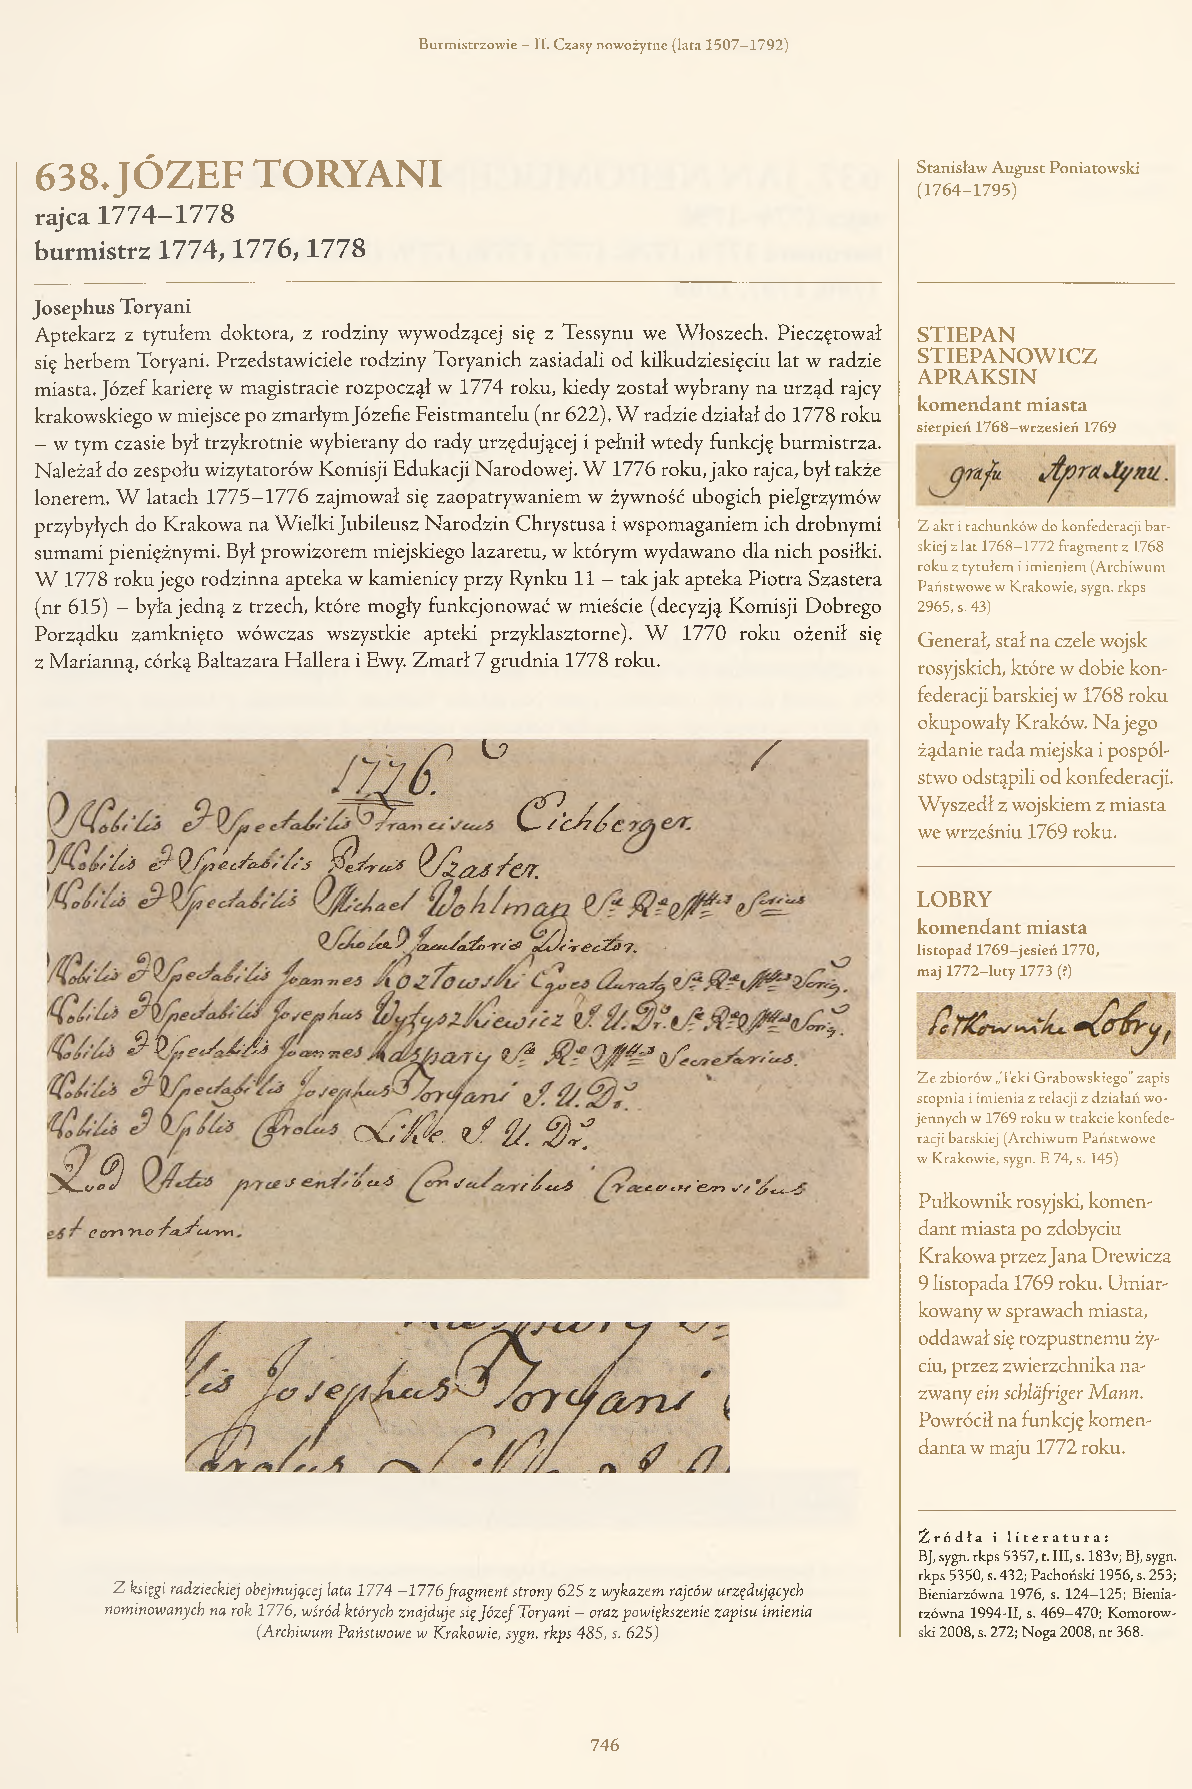 Burmistrzowie – II. Czasy nowożytne (lata 1507–1792)
638. JÓZEF TORYANI
rajca 1774–1778
burmistrz 1774, 1776, 1778
Josephus Toryani
Aptekarz z tytułem doktora, z rodziny wywodzącej się z Tessynu we Włoszech. Pieczętował
się herbem Toryani. Przedstawiciele rodziny Toryanich zasiadali od kilkudziesięciu lat w radzie
miasta. Józef karierę w magistracie rozpoczął w 1774 roku, kiedy został wybrany na urząd rajcy
krakowskiego w miejsce po zmarłym Józefie Feistmantelu (nr 622). W radzie działał do 1778 roku
– w tym czasie był trzykrotnie wybierany do rady urzędującej i pełnił wtedy funkcję burmistrza.
Należał do zespołu wizytatorów Komisji Edukacji Narodowej. W 1776 roku, jako rajca, był także
lonerem. W latach 1775–1776 zajmował się zaopatrywaniem w żywność ubogich pielgrzymów
przybyłych do Krakowa na Wielki Jubileusz Narodzin Chrystusa i wspomaganiem ich drobnymi
sumami pieniężnymi. Był prowizorem miejskiego lazaretu, w którym wydawano dla nich posiłki.
W 1778 roku jego rodzinna apteka w kamienicy przy Rynku 11 – tak jak apteka Piotra Szastera
(nr 615) – była jedną z trzech, które mogły funkcjonować w mieście (decyzją Komisji Dobrego
Porządku zamknięto wówczas wszystkie apteki przyklasztorne). W 1770 roku ożenił się
z Marianną, córką Baltazara Hallera i Ewy. Zmarł 7 grudnia 1778 roku.
1776.
Nobilis et Spectabilis Franciscus Eichberger.
Nobilis et Spectabilis Petrus Szaster.
Nobilis et Spectabilis Michael Wohlman
Scholae Jaculatoriae Director.
Nobilis et Spectabilis Joannes Kozłowski Eques Auratq
Nobilis et Spectabilis Josephus Wytyszkiewicz J. U. Dr.
Nobilis et Spectabilis Joannes Kaszpary Secretarius.
Nobilis et Spectabilis Josephus Toryani J. U. Dr.
Nobilis et Spblis Carolus Likke J. U. Dr.
Quod Actis praesentibus Consularibus Cracoviensibus
est connotatum.
lis Josephus Toryani
Z księgi radzieckiej obejmującej lata 1774 –1776 fragment strony 625 z wykazem rajców urzędujących
nominowanych na rok 1776, wśród których znajduje się Józef Toryani – oraz powiększenie zapisu imienia
(Archiwum Państwowe w Krakowie, sygn. rkps 485, s. 625)
Stanisław August Poniatowski
(1764–1795)
STIEPAN
STIEPANOWICZ
APRAKSIN
komendant miasta
sierpień 1768–wrzesień 1769
grafu Apraxynu.
Z akt i rachunków do konfederacji bar-
skiej z lat 1768–1772 fragment z 1768
roku z tytułem i imieniem (Archiwum
Państwowe w Krakowie, sygn. rkps
2965, s. 43)
Generał, stał na czele wojsk
rosyjskich, które w dobie kon-
federacji barskiej w 1768 roku
okupowały Kraków. Na jego
żądanie rada miejska i pospól-
stwo odstąpili od konfederacji.
Wyszedł z wojskiem z miasta
we wrześniu 1769 roku.
LOBRY
komendant miasta
listopad 1769–jesień 1770,
maj 1772–luty 1773 (?)
Połkownika Lobry,
Ze zbiorów „Teki Grabowskiego” zapis
stopnia i imienia z relacji z działań wo-
jennych w 1769 roku w trakcie konfede-
racji barskiej (Archiwum Państwowe
w Krakowie, sygn. E 74, s. 145)
Pułkownik rosyjski, komen-
dant miasta po zdobyciu
Krakowa przez Jana Drewicza
9 listopada 1769 roku. Umiar-
kowany w sprawach miasta,
oddawał się rozpustnemu ży-
ciu, przez zwierzchnika na-
zwany ein schläfriger Mann.
Powrócił na funkcję komen-
danta w maju 1772 roku.
Źródła i literatura:
BJ, sygn. rkps 5357, t. III, s. 183v; BJ, sygn.
rkps 5350, s. 432; Pachoński 1956, s. 253;
Bieniarzówna 1976, s. 124–125; Bienia-
rzówna 1994-II, s. 469–470; Komorow-
ski 2008, s. 272; Noga 2008, nr 368.
746